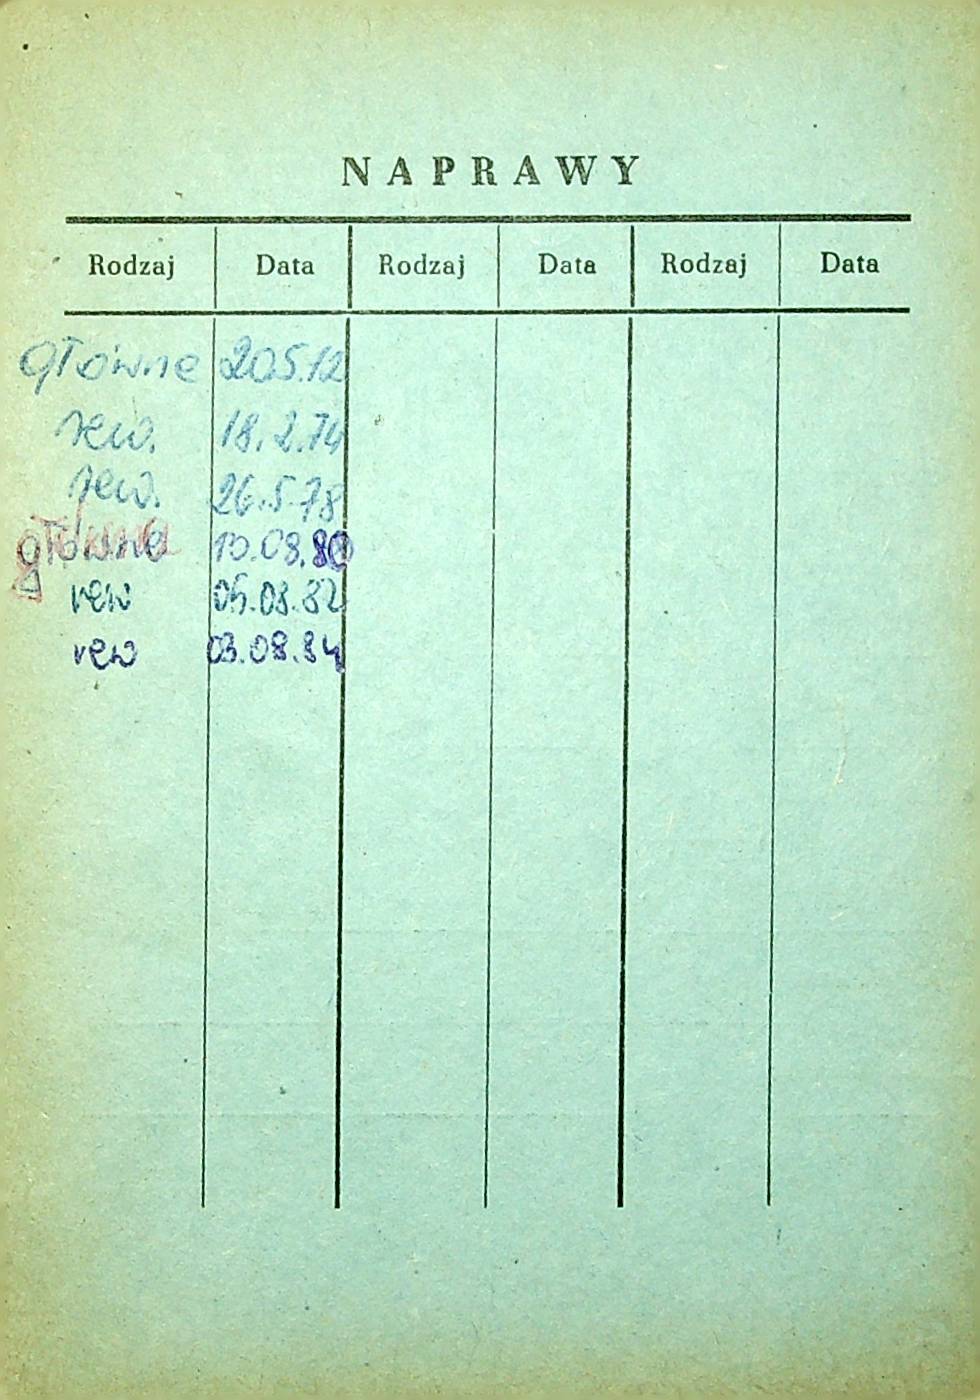 NAPRAWY
Rodzaj Data Rodzaj Data Rodzaj Data
główne 20.5.72
rew. 18.2.74
rew. 26.5.78
główne 10.08.80
rew 05.08.82
rew 03.08.84